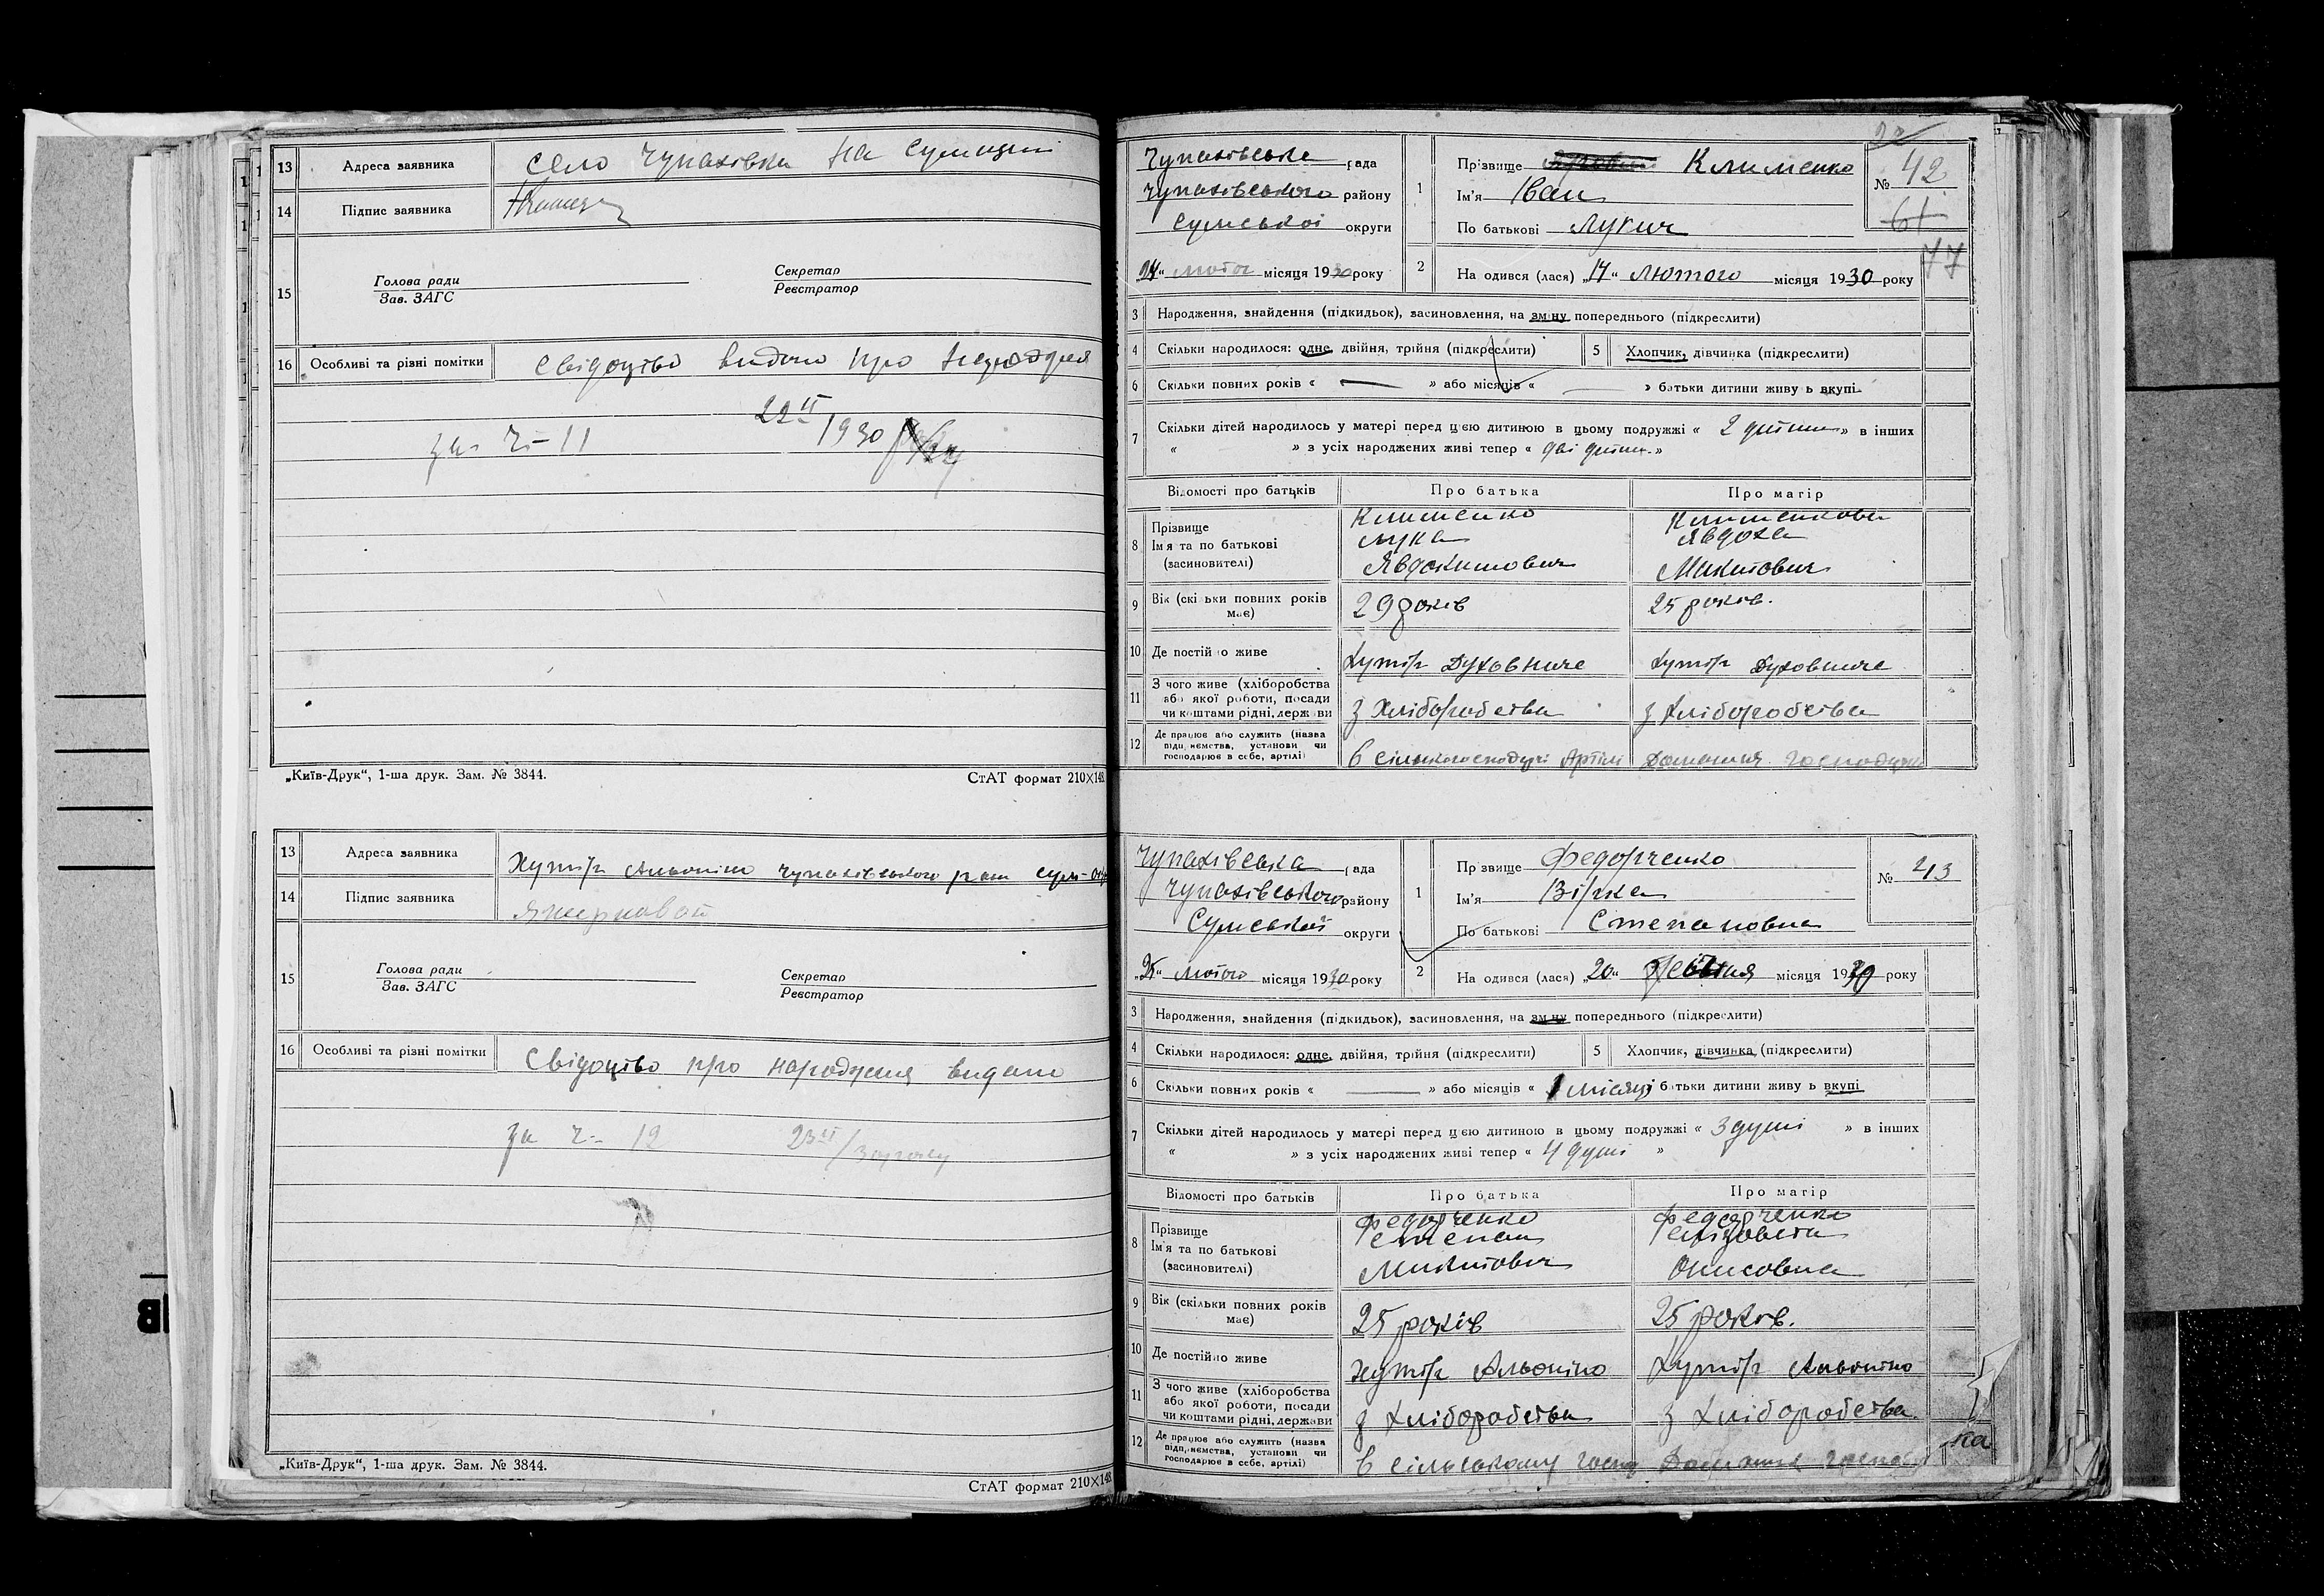 13 Адреса заявника село Чупахівка на Сумщині
14 Підпис заявника
15 Голова ради
Зав. ЗАГС
Секретар
Реєстратор
16 Особливі та різні помітки Свідоцтво видано про
за ч - 11 22 II/1930
„Київ-Друк“, 1-ша друк. Зам. № 3844. СтАТ формат 210×148
13 Адреса заявника Хутір Альоніно Чупахівського рай Сум-окр
14 Підпис заявника
15 Голова ради
Зав. ЗАГС
Секретар
Реєстратор
16 Особливі та різні помітки Свідоцтво про народження видано
за ч - 12 23 II/30 року
„Київ-Друк“, 1-ша друк. Зам. № 3844.
СтАТ формат 210×148
Чупахівська рада
Чупахівського району
Сумської округи
24 “ лютого місяця 1930 року
1 Прізвище Клименко
Ім'я Іван
По батькові Лукич
№ 42
61
77
2 На одився (лася) „17“ лютого місяця 1930 року
3 Народження, знайдення (підкидьок), засиновлення, на зміну попереднього (підкреслити)
4 Скільки народилося: одне, двійня, трійня (підкреслити) 5 Хлопчик, дівчинка (підкреслити)
6 Скільки повних років « — » або місяців « — » батьки дитини живу ь вкупі
7 Скільки дітей народилось у матері перед цією дитиною в цьому подружжі « 2 дитини » в інших
« » з усіх народжених живі тепер « дві дитин. »
Відомості про батьків Про батька Про матір
8 Прізвище Клименко Клименкова
Ім'я та по батькові Лука Явдоха
(засиновителі) Явдокимович Микитович
9 Вік (скільки повних років має) 29 років 25 років.
10 Де постійно живе хутір Духовниче хутір Духовниче
11 З чого живе (хліборобства
або якої роботи, посади
чи коштами рідні, держави з хліборобства з хліборобства
12 Де працює або служить (назва
підприємства, установи чи
господарює в себе, артілі) в сільськогосподарчі Артілі Домашня господарка
Чупахівська рада
Чупахівського району
Сумської округи
„25“ лютого місяця 1930 року
1 Прізвище Федорченко
Ім'я Вірка
По батькові Степановна
№ 43
2 На одився (лася) „20“ місяця 19 року
3 Народження, знайдення (підкидьок), засиновлення, на зміну попереднього (підкреслити)
4 Скільки народилося: одне, двійня, трійня (підкреслити) 5 Хлопчик, дівчинка (підкреслити)
6 Скільки повних років « — » або місяців « 1 місяць батьки дитини живу ь вкупі
7 Скільки дітей народилось у матері перед цією дитиною в цьому подружжі « 3 душі » в інших
« » з усіх народжених живі тепер « 4 душі »
Відомості про батьків Про батька Про матір
8 Прізвище Федорченко Федорченко
Ім'я та по батькові Степан Єлізовета
(засиновителі) Микитович Онисовна
9 Вік (скільки повних років має) 25 років 25 років.
10 Де постійно живе хутір Альоніно хутір Альоніно
11 З чого живе (хліборобства
або якої роботи, посади
чи коштами рідні, держави з хліборобства з хліборобства.
12 Де працює або служить (назва
підприємства, установи чи
господарює в себе, артілі) в сільському госпо Домашня господ